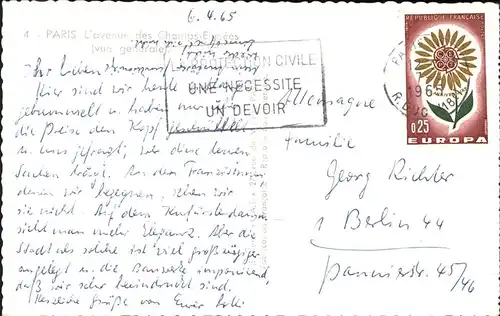 6.4.65
4 - PARIS L'avenue des Champs-Elysées
(vue générale)
LA PROTECTION CIVILE
UNE NÉCESSITÉ
UN DEVOIR
RÉPUBLIQUE FRANÇAISE
0,25
EUROPA
Ihr Lieben
sind wir heute
gebummelt u. haben nur
die Preise den Kopf geschüttelt
u. uns gefragt, wer all diese teuren
Sachen kauft. An den Französinnen
denen wir begegnen, sehen wir
sie nicht. Auf dem Kurfürstendamm
sieht man mehr Eleganz. Aber die
Stadt als solche ist viel großzügiger
angelegt u. die Bauwerke imponierend
daß wir sehr beeindruckt sind.
Herzliche Grüße von Eurer
Allemagne
Familie
Georg Richter
1 Berlin 44
Pannierstr. 45/46